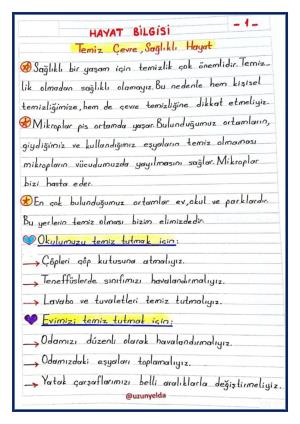 HAYAT BİLGİSİ
- 1 -
Temiz Çevre, Sağlıklı Hayat
Sağlıklı bir yaşam için temizlik çok önemlidir. Temiz-
lik olmadan sağlıklı olamayız. Bu nedenle hem kişisel
temizliğimize, hem de çevre temizliğine dikkat etmeliyiz.
Mikroplar pis ortamda yaşar. Bulunduğumuz ortamların,
giydiğimiz ve kullandığımız eşyaların temiz olmaması
mikropların vücudumuzda yayılmasını sağlar. Mikroplar
bizi hasta eder.
En çok bulunduğumuz ortamlar ev, okul ve parklardır.
Bu yerlerin temiz olması bizim elimizdedir.
Okulumuzu temiz tutmak için:
→ Çöpleri çöp kutusuna atmalıyız.
→ Teneffüslerde sınıfımızı havalandırmalıyız.
→ Lavabo ve tuvaletleri temiz tutmalıyız.
Evimizi temiz tutmak için:
→ Odamızı düzenli olarak havalandırmalıyız.
→ Odamızdaki eşyaları toplamalıyız.
→ Yatak çarşaflarımızı belli aralıklarla değiştirmeliyiz.
@uzunyelda